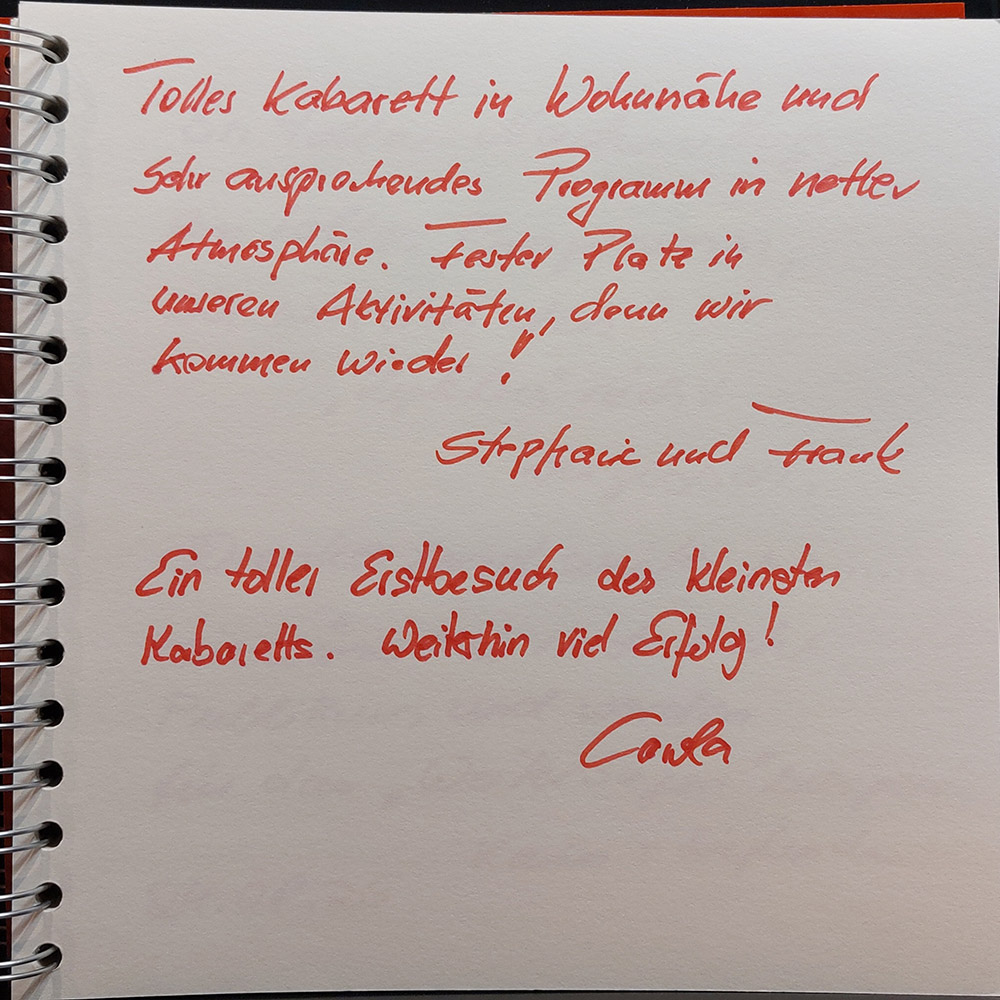 Tolles Kabarett in Wohnnähe und
sehr ansprechendes Programm in netter
Atmosphäre. Fester Platz in
unseren Aktivitäten, denn wir
kommen wieder!
Stephanie und Frank
Ein toller Erstbesuch des kleinsten
Kabaretts. Weiterhin viel Erfolg!